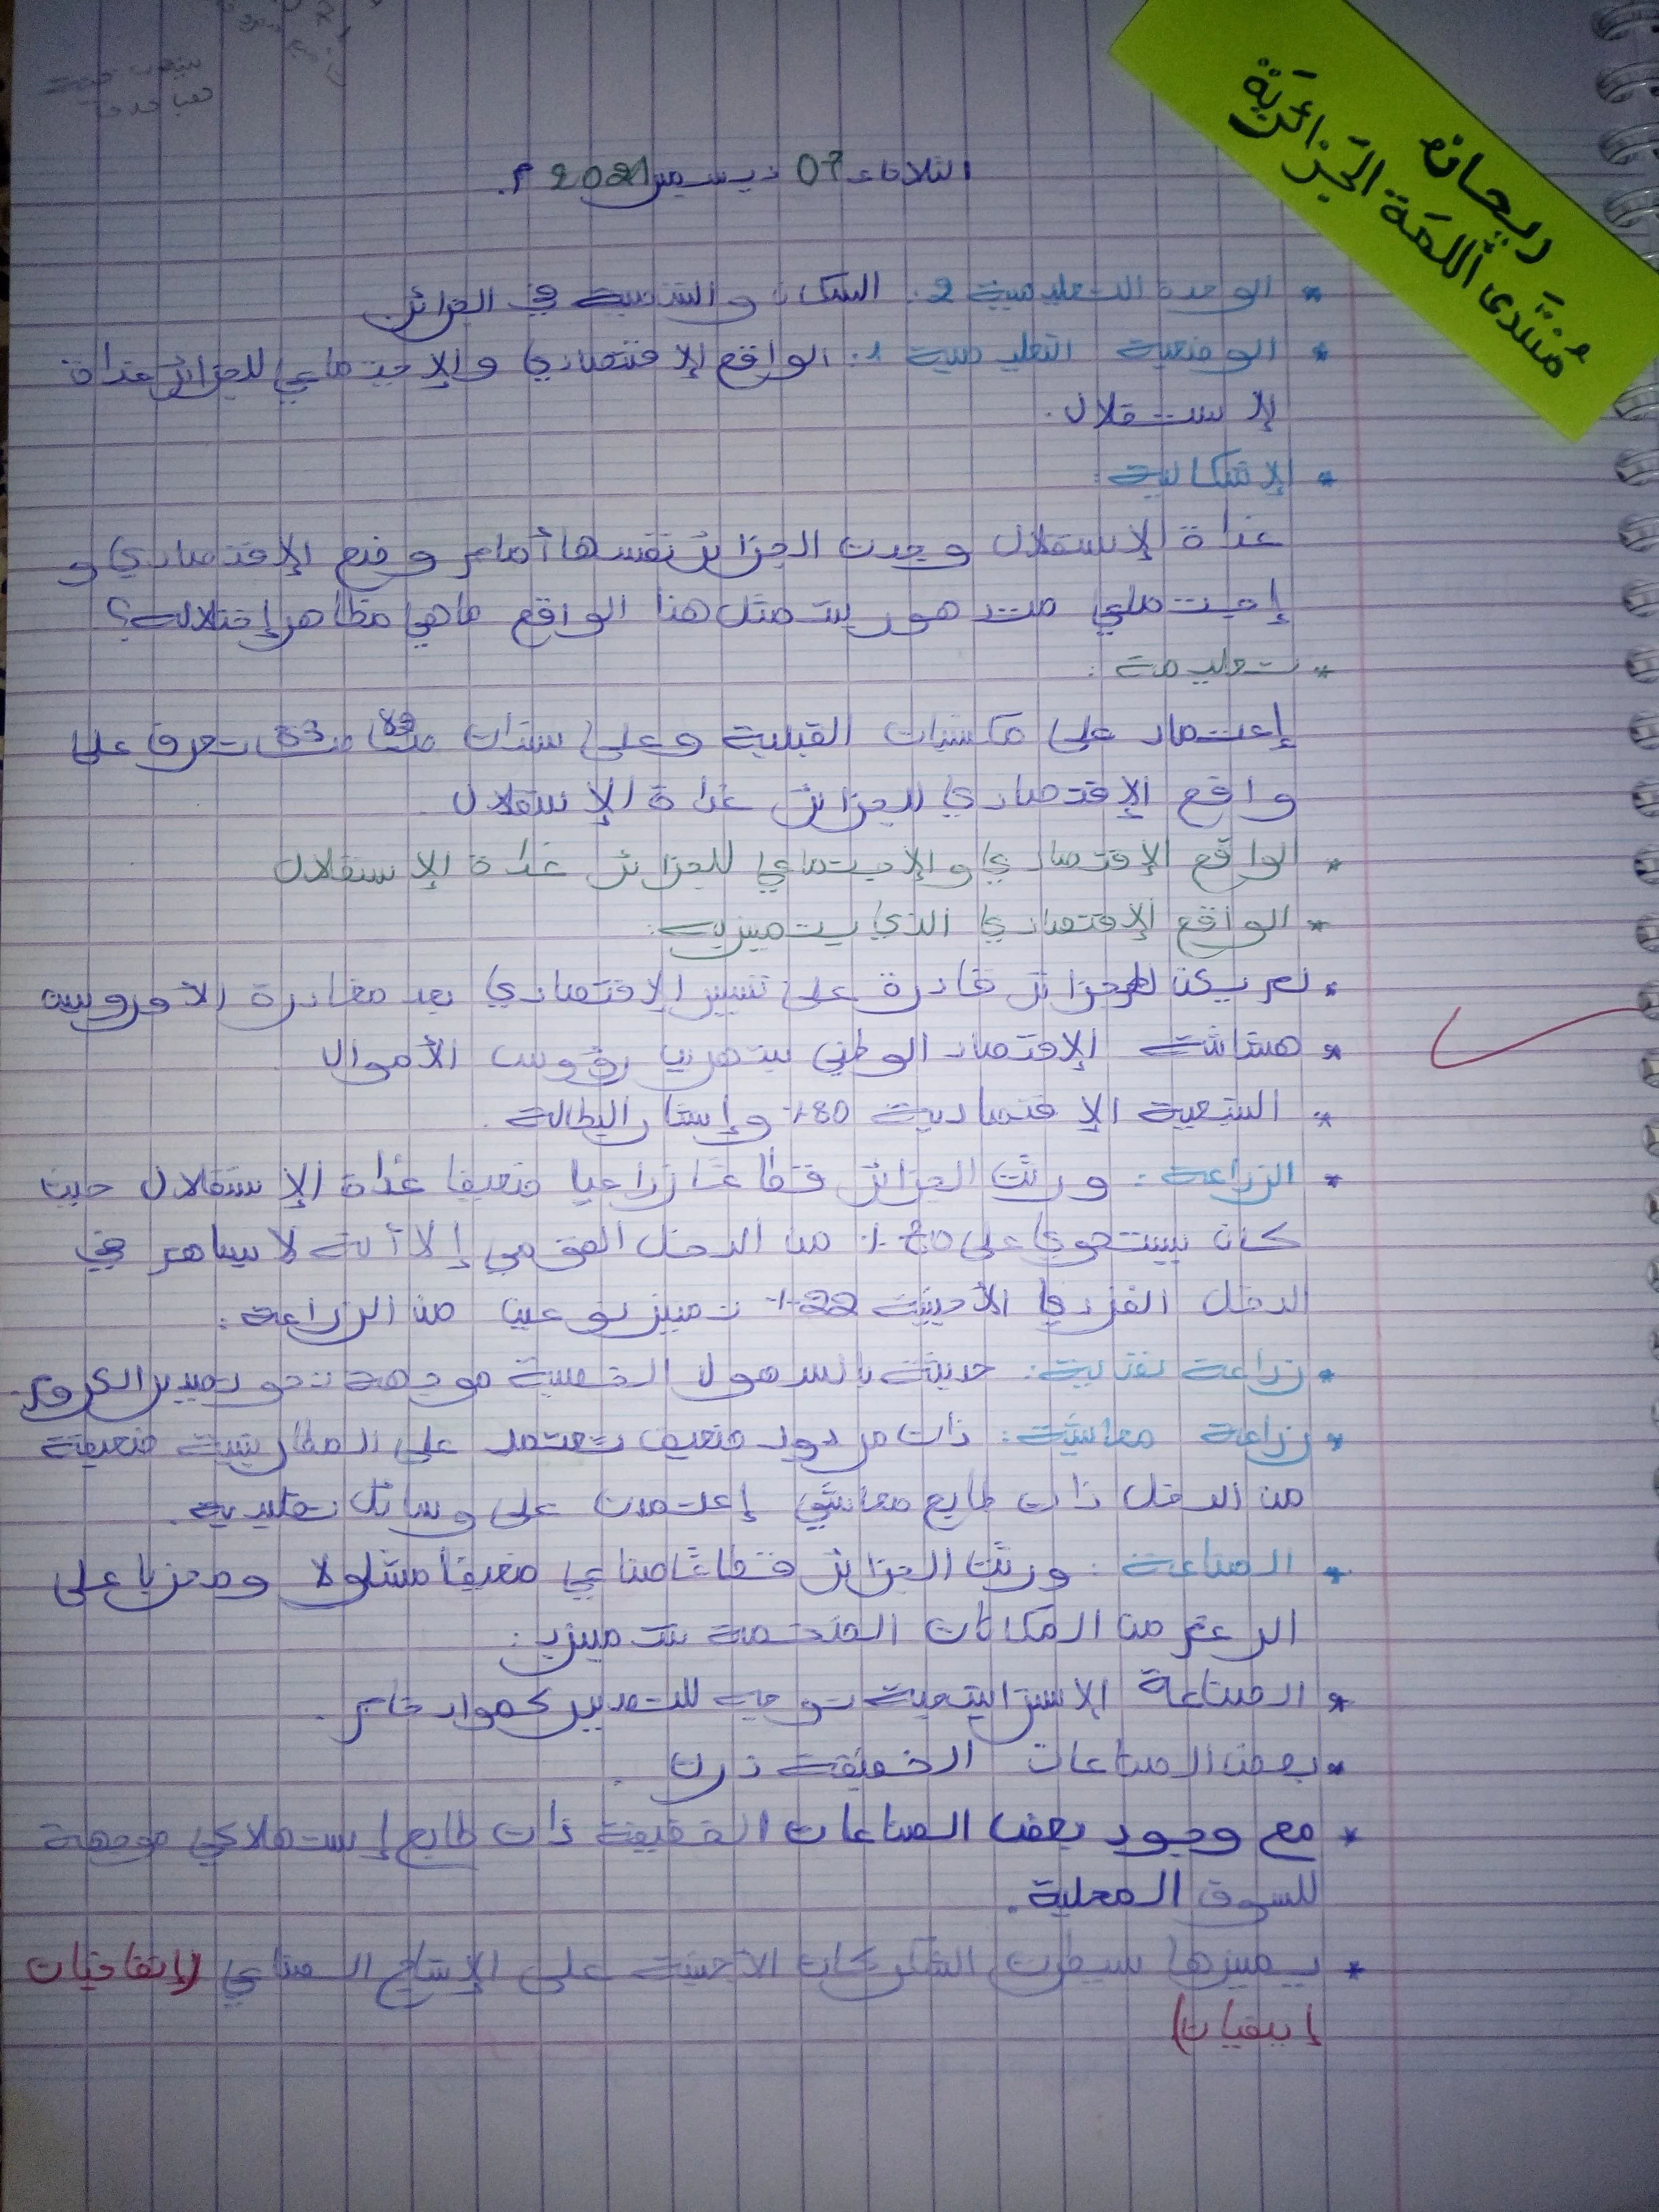 ريحانة
مُنتَدى اللَّمَة الجَزائريَّة
الثلاثاء 07 ديسمبر 2021 م.
* الوحدة التعليمية 2: السكان والتنمية في الجزائر
* الوضعية التعليمية 1: الواقع الإقتصادي والإجتماعي للجزائر غداة
الإستقلال.
* الإشكالية:
غداة الإستقلال وجدت الجزائر نفسها أمام وضع الإقتصادي و
إجتماعي متدهور يتمثل هذا الواقع ماهي مظاهر إختلاله؟
* تعليمة:
إعتماد على مكتسبات القبلية وعلى سندات ص 83 تعرف على
واقع الإقتصادي للجزائر غداة الإستقلال
* الواقع الإقتصادي والإجتماعي للجزائر غداة الإستقلال
* الواقع الإقتصادي الذي يتميز به:
* لم يكن الجزائر قادرة على تسيير الإقتصادي بعد مغادرة الأوروبيين
* هشاشة الإقتصاد الوطني بتهريب رؤوس الأموال
* التبعية الإقتصادية 80% وإنتشار البطالة.
* الزراعة: ورثت الجزائر قطاعًا زراعيا ضعيفا غداة الإستقلال حيث
كان يستحوي على % من الدخل القومي إلا أنه لا يساهم في
الدخل الفردي الأجنبية 22% تميز نوعين من الزراعة:
* زراعة نقدية: حديثة بالسهول الخصبة موجهة نحو تصدير الكروم.
* زراعة معاشية: ذات مردود ضعيف تعتمد على المطار بنسبة ضعيفة
من الدخل ذات طابع معاشي إعتمدت على وسائل تقليدية.
* الصناعة: ورثت الجزائر قطاعًا صناعي ضعيفًا مشلولا ومخربا على
الرغم من المكانات الضخمة تتميز ب:
* الصناعة الإستراتيجية توجه للتصدير كمواد خام.
* بعض الصناعات الخفيفة ذات.
* مع وجود بعض الصناعات الخفيفة ذات طابع إستهلاكي موجهة
للسوق المحلية.
* يميزها سيطرت الشركات الأجنبية على الإنتاج الصناعي (إتفاقيات
إيفيان)